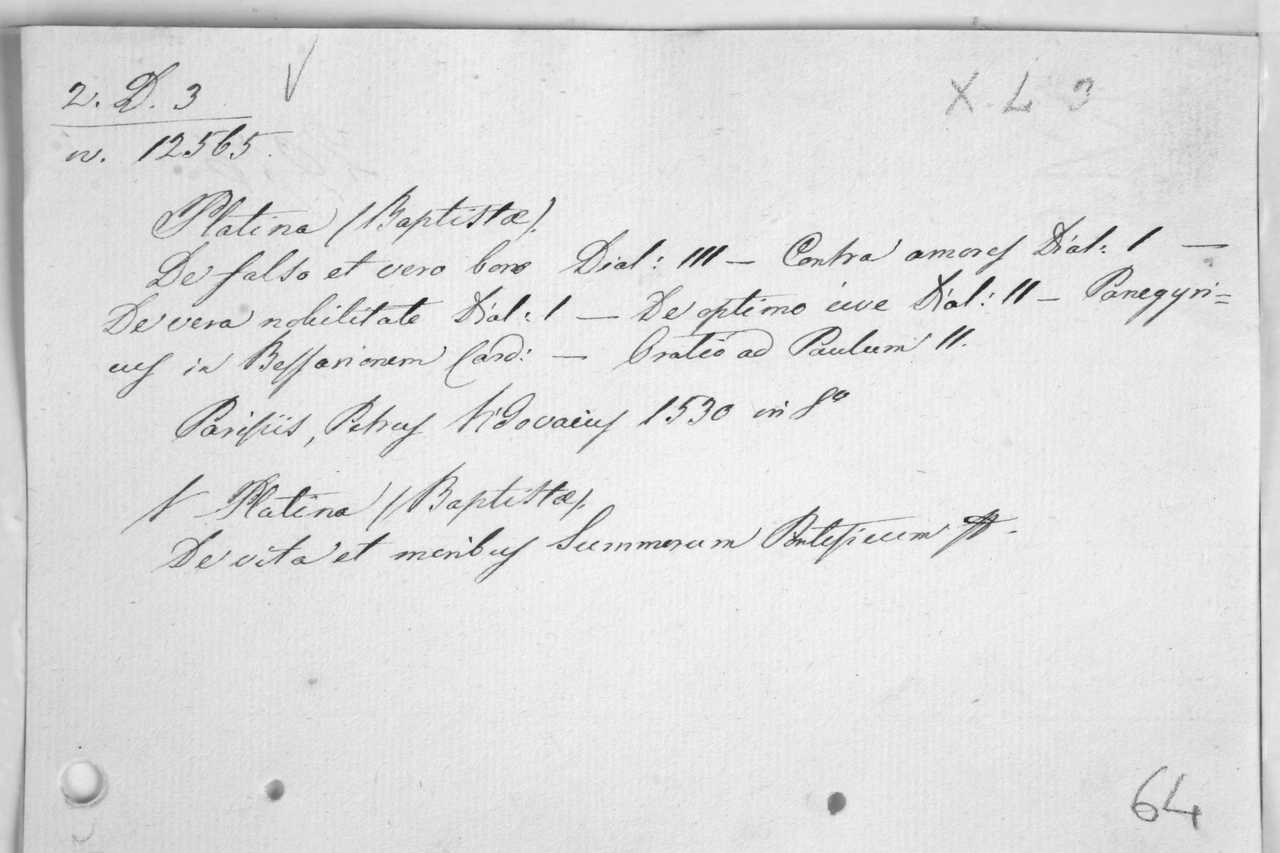 2. D. 3 X L 3
n. 12565.
Platina (Baptistæ).
De falso et vero bono Dial: III — Contra amores Dial: I —
De vera nobilitate Dial: I — De optimo cive Dial: II — Panegyri=
cus in Bessarionem Card: — Oratio ad Paulum II.
Parisiis, Petrus Vidovæus 1530 in 8º
V Platina (Baptistæ).
De vita et moribus Summorum Pontificum
64